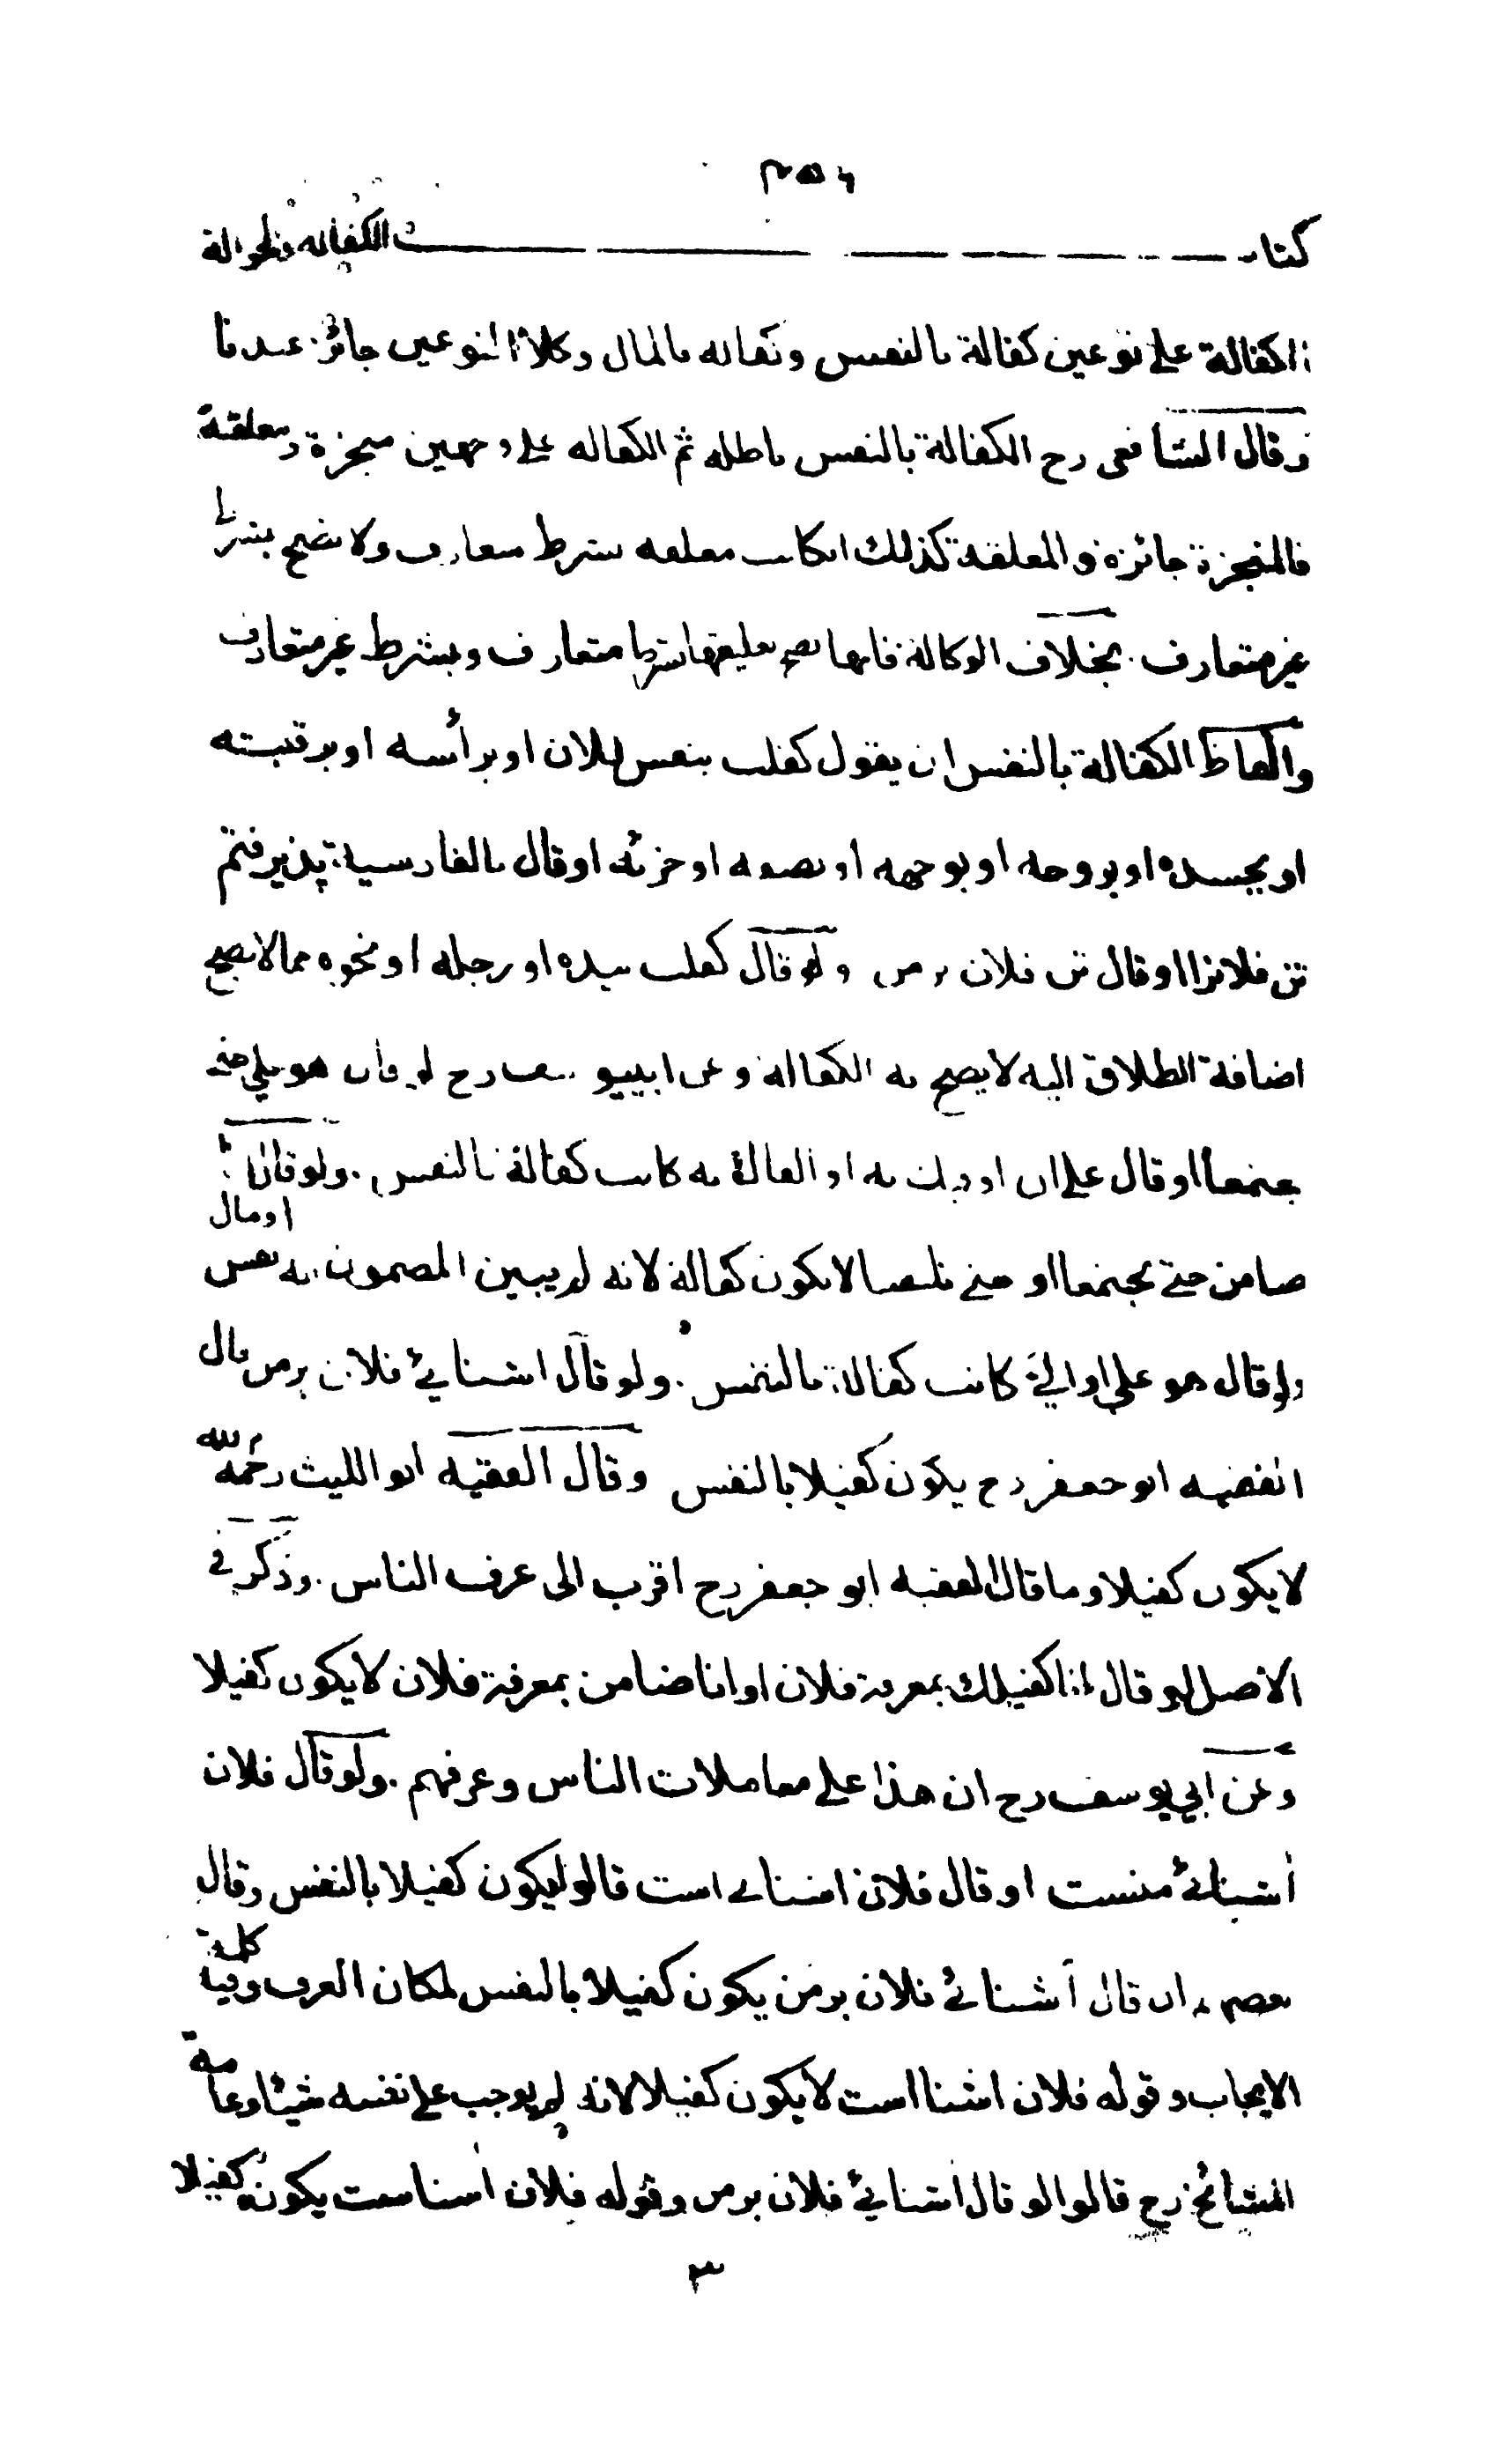 كتاب الكفالة والحوالة
الكفالة على نوعين كفالة بالنفس وكفالة بالمال وكلا النوعين جائز عندنا
وقال الشافعي رح الكفالة بالنفس باطلة ثم الكفالة على وجهين منجزة ومعلقة
فالمنجزة جائزة والمعلقة كذلك انكانت معلقة بشرط متعارف ولا تصح بشرط
غير متعارف بخلاف الوكالة فانها تصح تعليقها بشرط متعارف وبشرط غير متعارف
والفاظ الكفالة بالنفس ان يقول كفلت بنفس فلان او برأسه او برقبته
او بجسده او بروحه او بوجهه او بنصفه او جزئه او قال بالفارسية پذيرفتم
تن فلانرا او قال تن فلان بر من ولو قال كفلت بيده او رجله او نحوه مما لا يصح
اضافة الطلاق اليه لا يصح به الكفالة وعن ابي يوسف رح لو قال هو علي حتى
نجتمعا او قال علي ان اوفيك به او القاك به كانت كفالة بالنفس ولو قال انا
ضامن حتى نجتمعا او حتى نلتقيا لا يكون كفالة لانه لم يبين المضمون انه نفس او مال
ولو قال هو علي او الي كانت كفالة بالنفس ولو قال اشنائي فلان بر من قال
الفقيه ابو جعفر رح يكون كفيلا بالنفس وقال الفقيه ابو الليث رحمه الله
لا يكون كفيلا وما قال الفقيه ابو جعفر رح اقرب الى عرف الناس وذكر في
الاصل لو قال انا كفيلك بمعرفة فلان او انا ضامن بمعرفة فلان لا يكون كفيلا
وعن ابي يوسف رح ان هذا على معاملات الناس وعرفهم ولو قال فلان
اشنائ منست او قال فلان اشناى است قالوا يكون كفيلا بالنفس وقال
بعضهم ان قال آشنائ فلان بر من يكون كفيلا بالنفس لمكان العرف وفيه كلمة
الايجاب وقوله فلان اشنا است لا يكون كفيلا لانه لم يوجب على نفسه شيئا وعامة
المشائخ رح قالوا لو قال اشنائي فلان بر من وقوله فلان اشناست يكون كفيلا